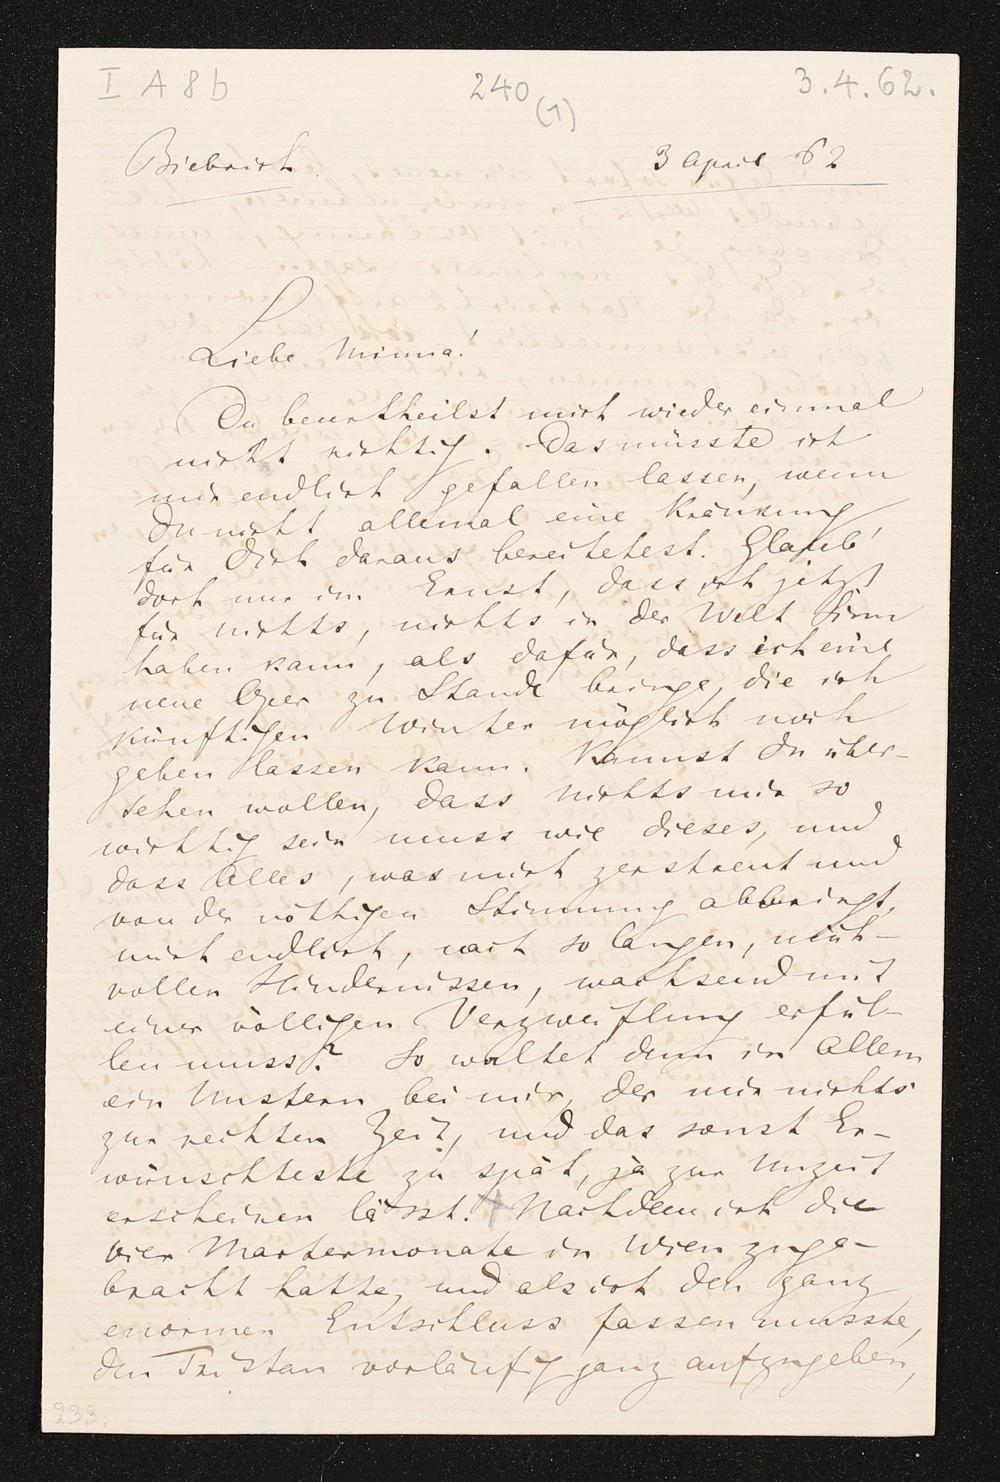 I A 8 b 240 (1) 3.4.62.
Biebrich. 3 April 62
Liebe Minna!
Du beurtheilst mich wieder einmal
nicht richtig. Das müsste ich
mir endlich gefallen lassen, wenn
Du nicht allemal eine Kränkung
für Dich daraus bereitetest. Glaub'
doch nur im Ernst, dass ich jetzt
für nichts, nichts in der Welt Sinn
haben kann, als dafür, dass ich eine
neue Oper zu Stande bringe, die ich
künftigen Winter möglich noch
geben lassen kann. Kannst Du über-
sehen wollen, dass nichts mir so
wichtig sein muss wie dieses, und
dass Alles, was mich zerstreut und
von der nöthigen Stimmung abbringt,
mich endlich, nach so langen, müh-
vollen Hindernissen, wachsend mit
einer völligen Verzweiflung erfül-
len muss? So waltet denn in Allem
ein Unstern bei mir, der mir nichts
zur rechten Zeit, und das sonst Er-
wünschteste zu spät, ja zur Unzeit
erscheinen lässt. Nachdem ich die
vier Martermonate in Wien zuge-
bracht hatte, und als ich den ganz
enormen Entschluss fassen musste,
den Tristan vorläufig ganz aufzugeben,
233.